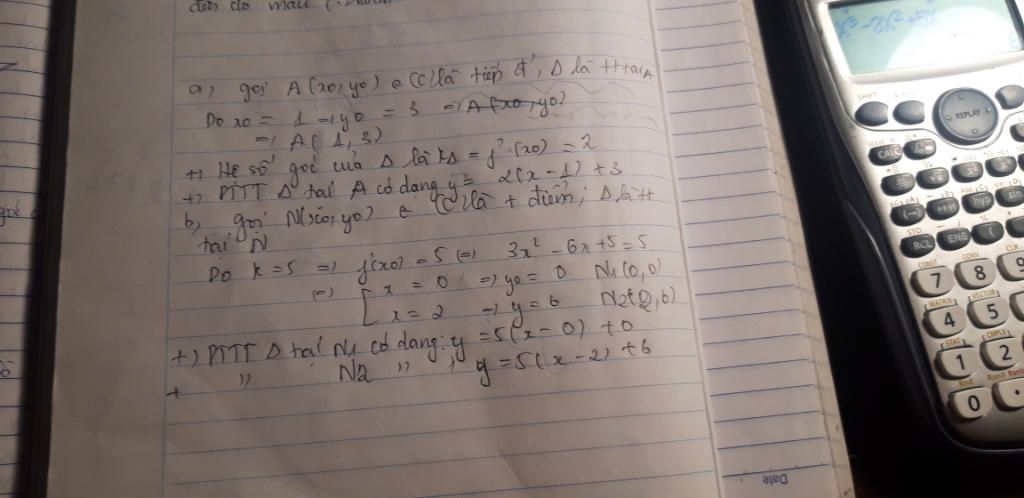 a, gọi A (x0, y0) e (C) là tiếp đ', Δ là tt tại A
Do x0 = 1 => y0 = 3 => A (x0, y0)
=> A ( 1, 3)
+) Hệ số góc của Δ là kΔ = f' (x0) = 2
+) PTTT Δ tại A có dạng y = 2(x - 1) + 3
b, gọi N(x0, y0) e (C) là t điểm; Δ là tt
tại N
Do k = 5 => f'(x0) = 5 (=) 3x² - 6x + 5 = 5
(=) [ x = 0 => y0 = 0 N1 (0, 0)
x = 2 => y = 6 N2 (2, 6)
+) PTTT Δ tại N1 có dạng: y = 5(x - 0) + 0
+ " N2 " y = 5(x - 2) + 6
Date
SHIFT
REPLAY
CALC
hyp
sin
STO
RCL
ENG
(
CONST
CONV
CLR
7
8
9
MATRIX
VECTOR
4
5
STAT
CMPLX
1
2
Rnd
Ran#
0